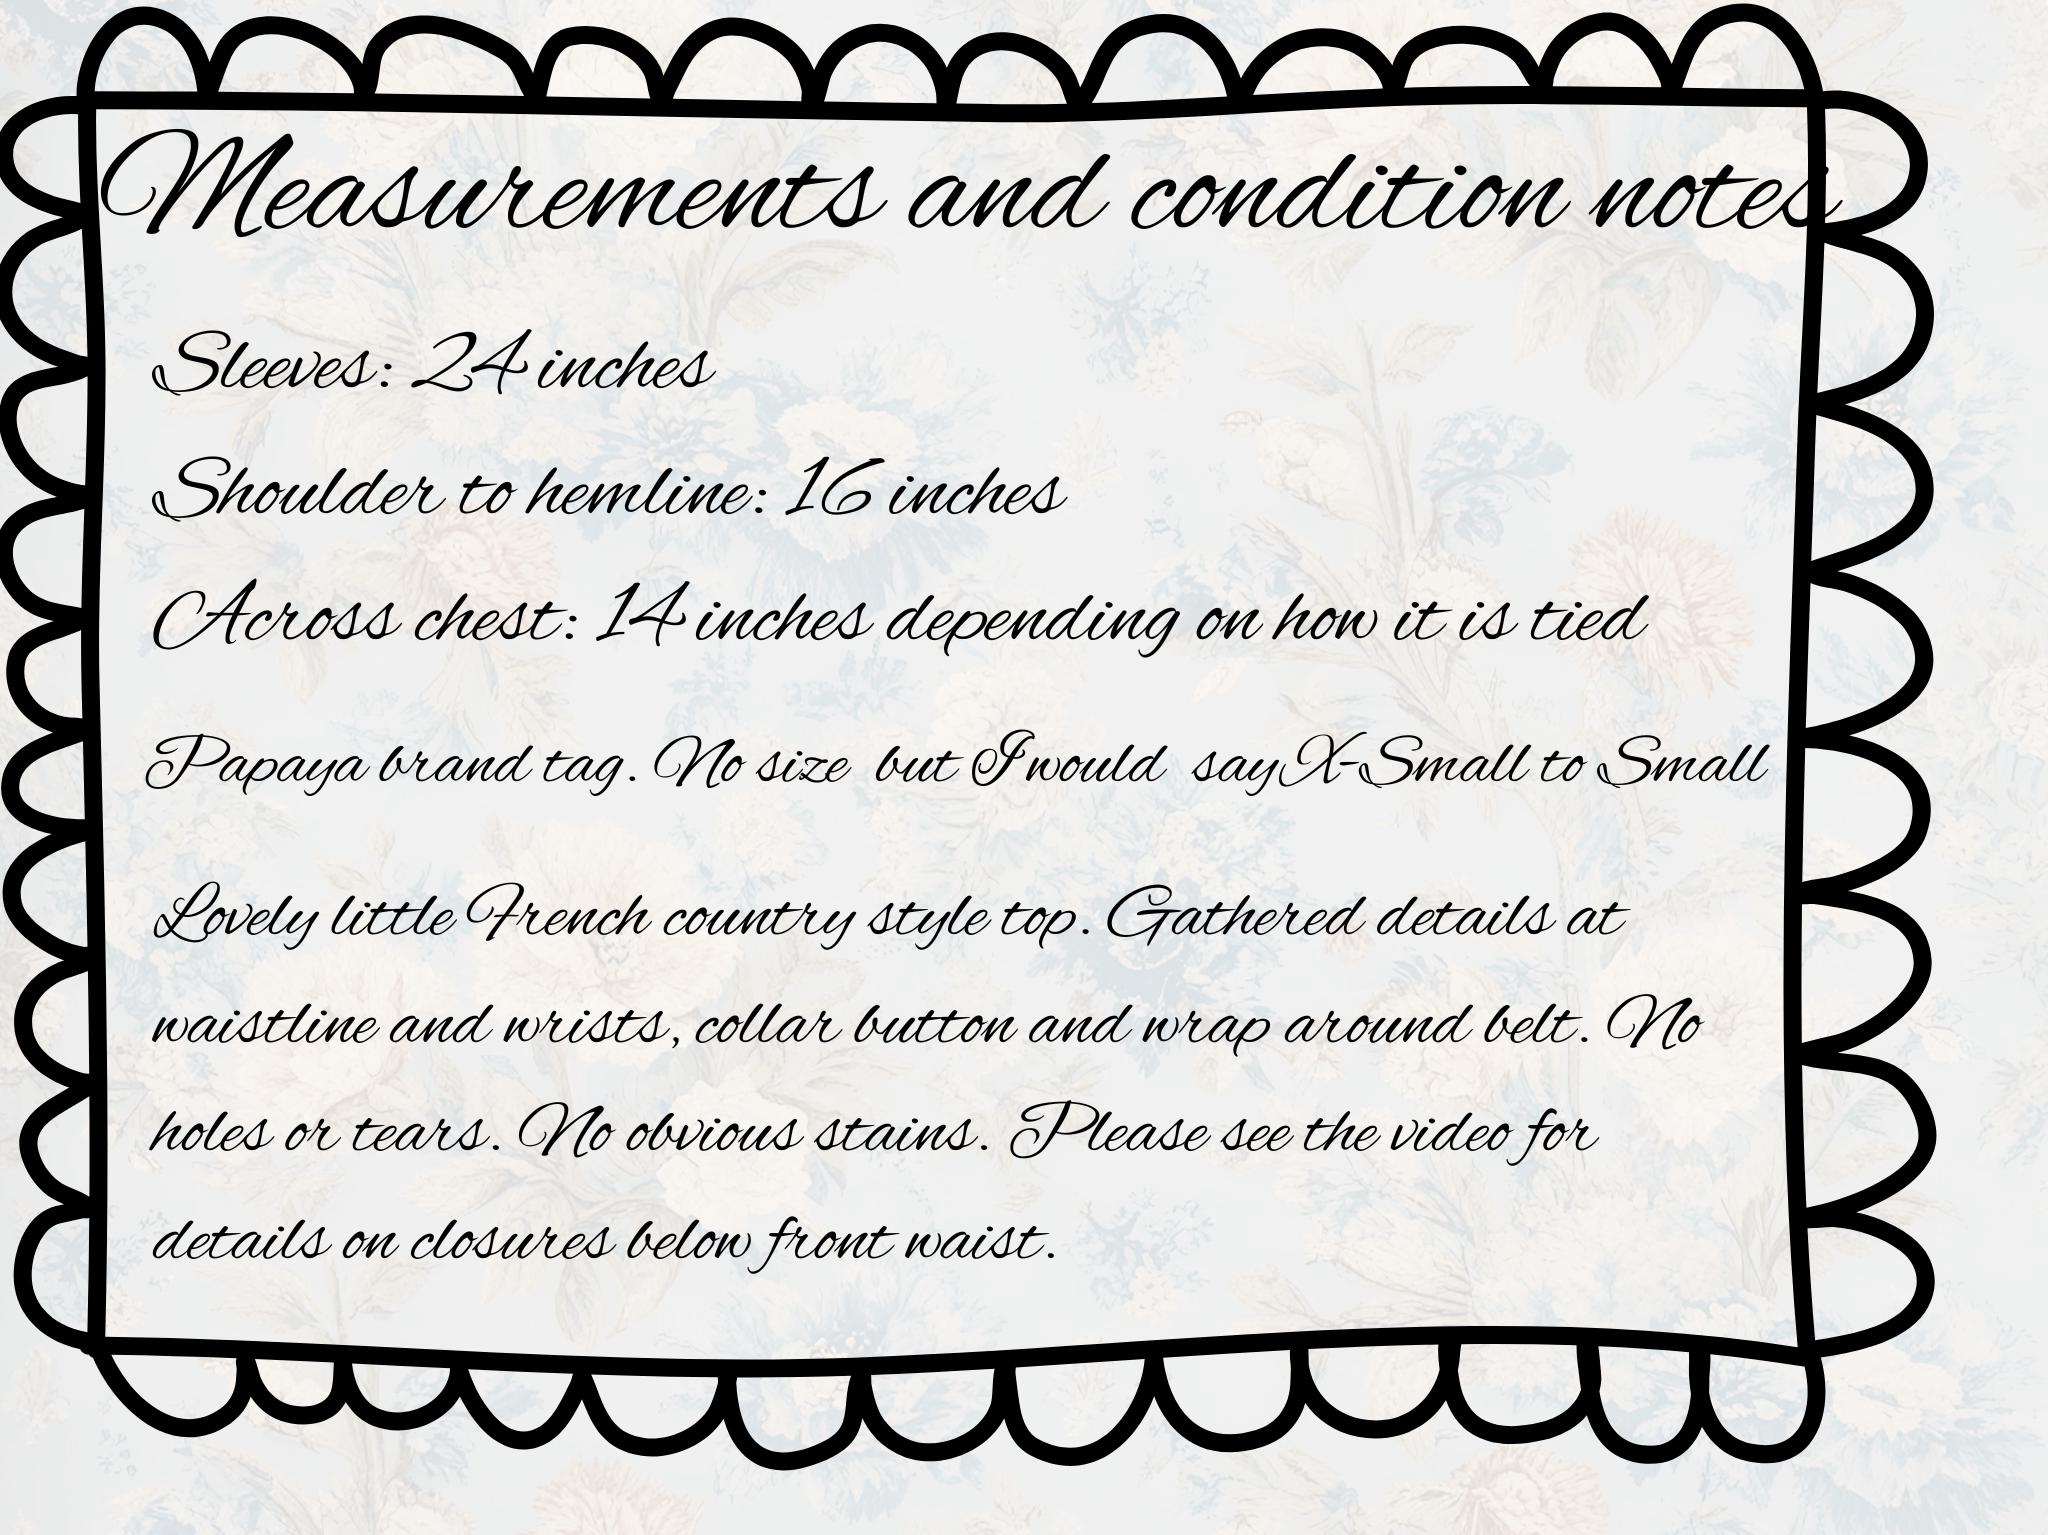 Measurements and condition notes
Sleeves: 24 inches
Shoulder to hemline: 16 inches
Across chest: 14 inches depending on how it is tied
Papaya brand tag. No size but I would say X-Small to Small
Lovely little French country style top. Gathered details at
waistline and wrists, collar button and wrap around belt. No
holes or tears. No obvious stains. Please see the video for
details on closures below front waist.